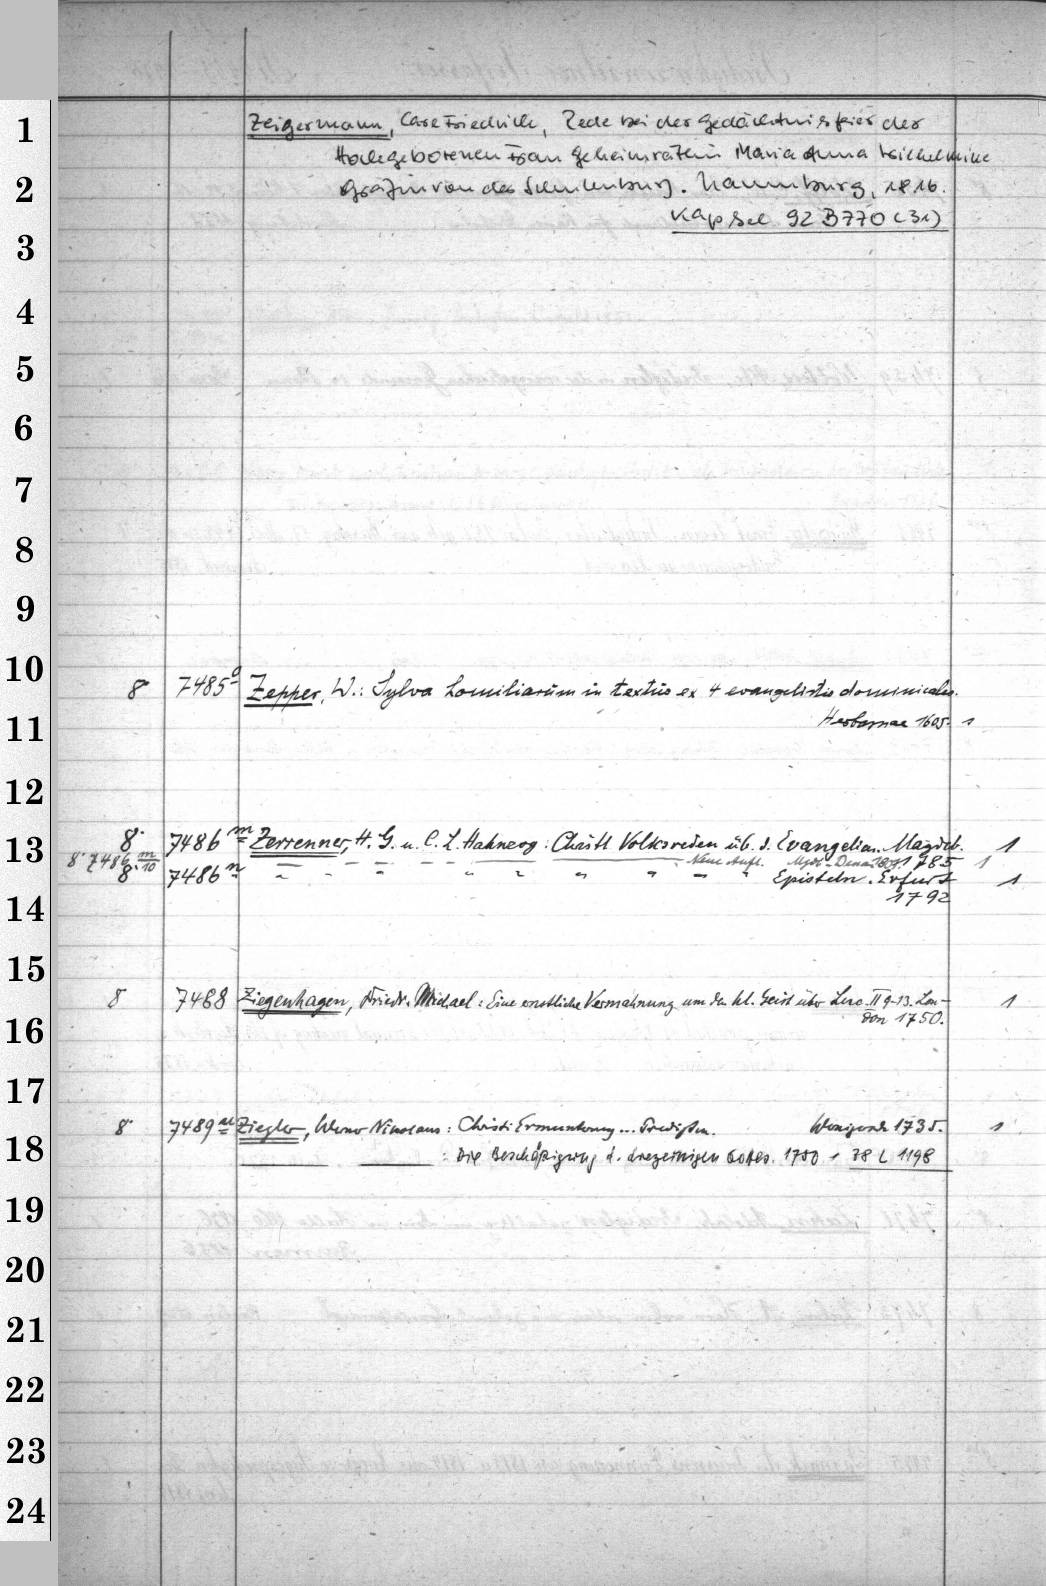 1
Zeigermann, Carl Friedrich, Rede bei der Gedächtnisfeier der
Hochgeborenen Frau Geheimräthin Maria Anna Wilhelmine
2
Gräfin von der Schulenburg. Naumburg, 1816.
Kapsel 92 B 770 (31)
3
4
5
6
7
8
9
10
8° 7485 a Zepper, W.: Sylva homiliarum in textus ex 4 evangelistis dominicales.
11
Herbornae 1605. 1
12
8° 7486 m Zerrenner, H. G. u. C. L. Hahnzog: Christl Volksreden üb. d. Evangelien. Magdeb. 1
13
8° 7486 m/10 — — — — Neue Aufl. 1785 1
8° 7486 n " " " " " " " " " Episteln. Erfurt 1
14
1792
15
8° 7488 Ziegenhagen, Friedr. Michael: Eine ernstliche Vermahnung um den hl. Geist über Luc. II 9-13. Lon-
16
don 1750. 1
17
8° 7489 Ziegler, Werner Nikolaus: Christi Ermunterung... Predigten. Wernigerode 1735. 1
18
— — : Die Beschäftigung d. dreyeinigen Gottes. 1750 1 78 L 1198
19
20
21
22
23
24